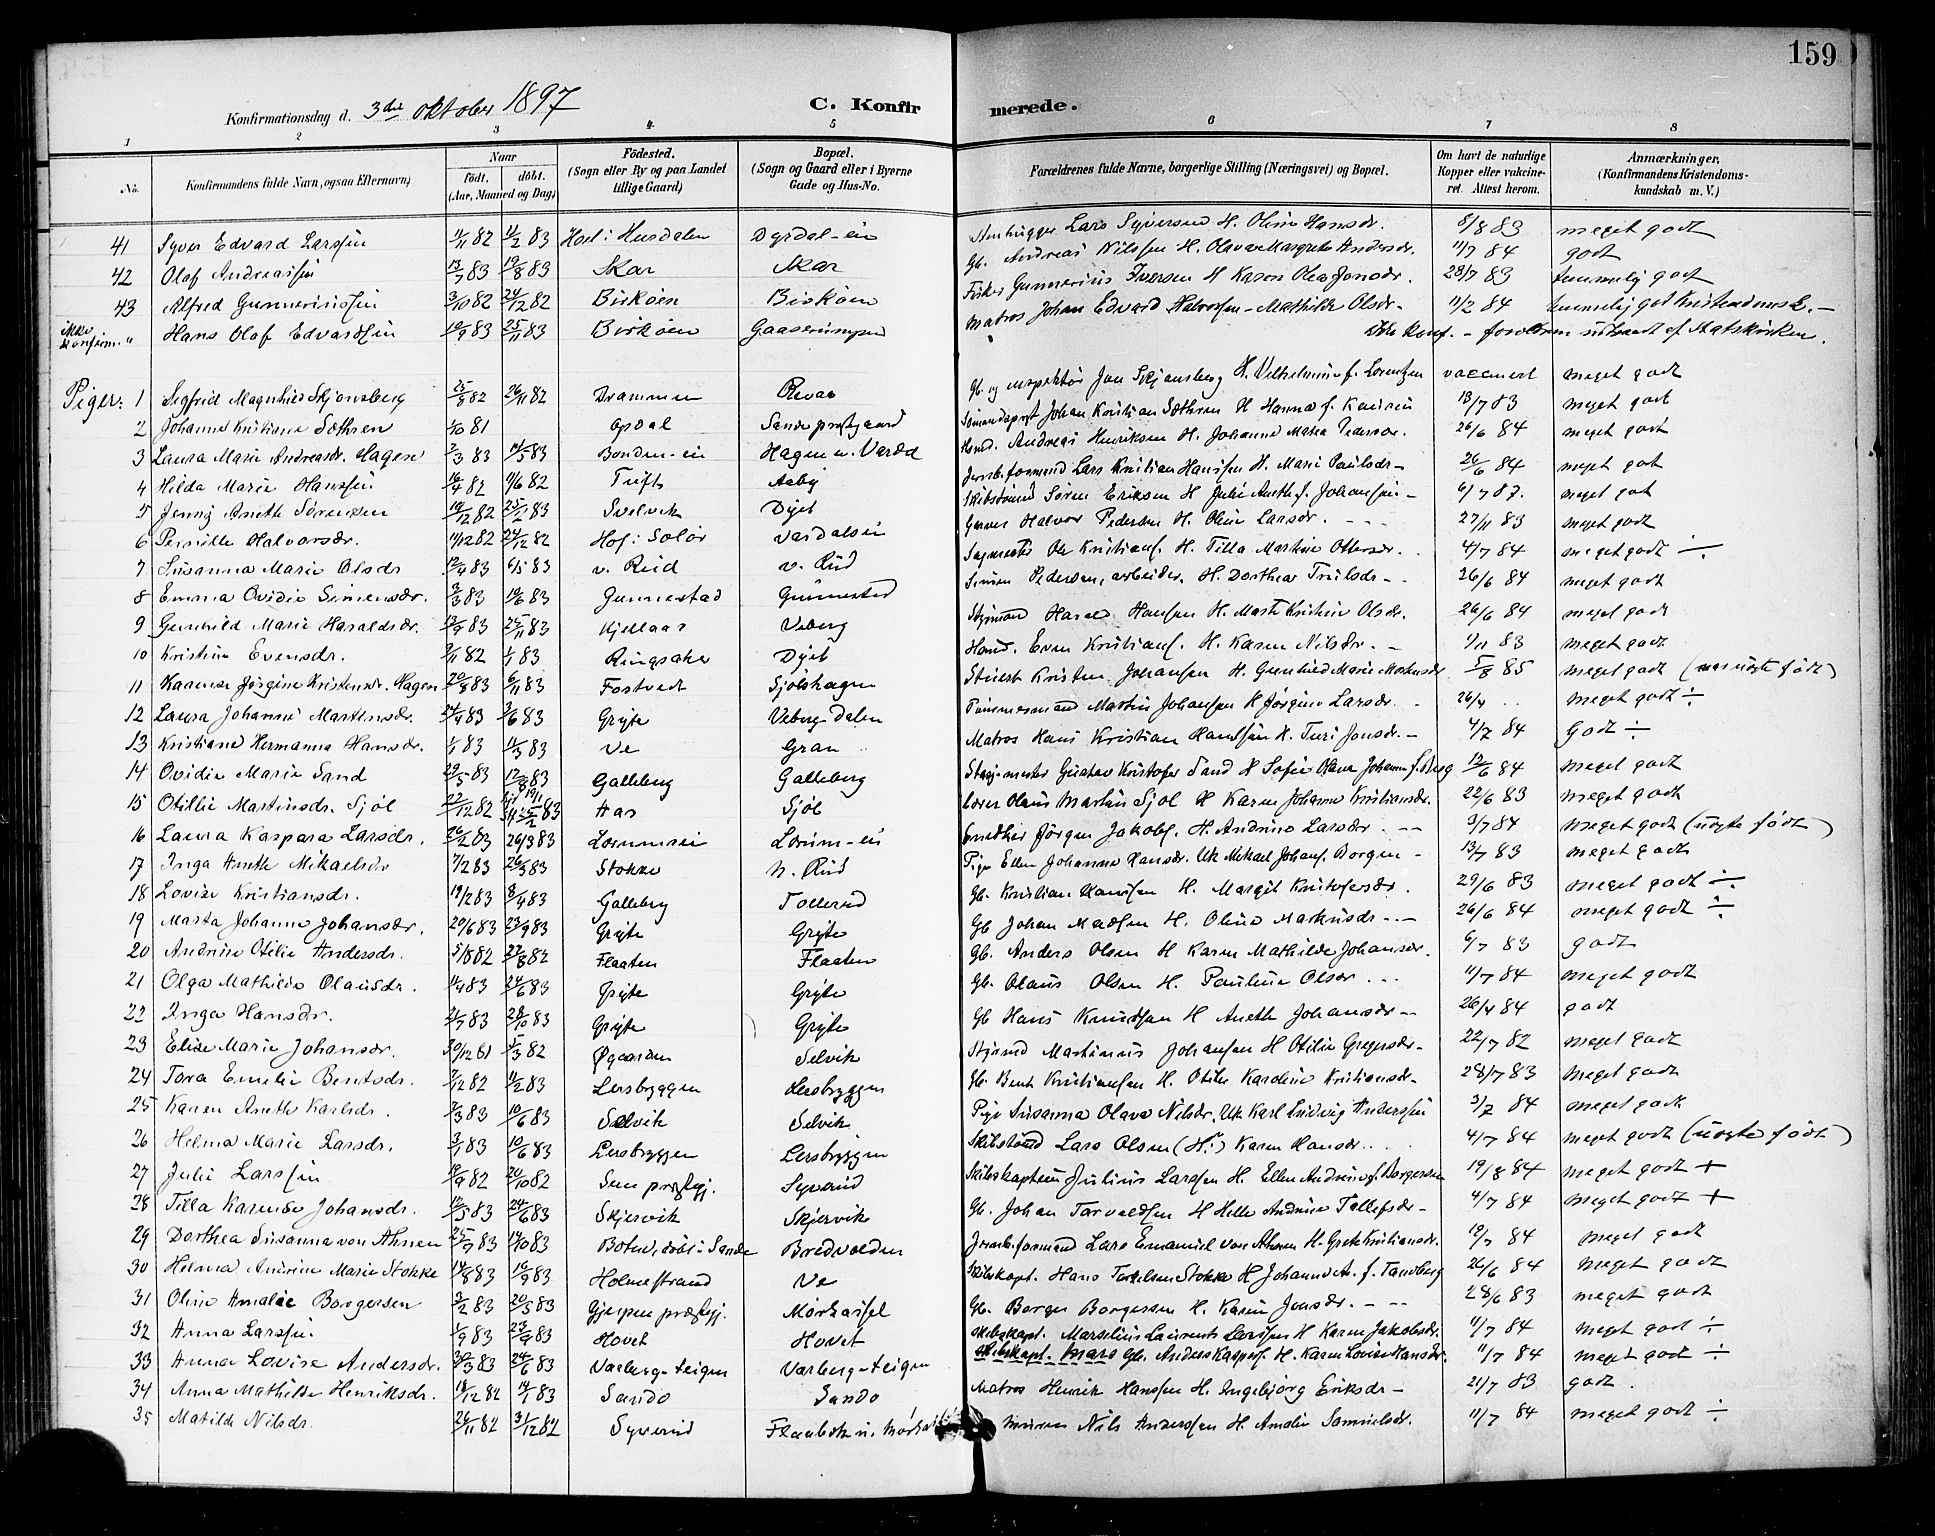 159
Konfirmationsdag d. 3die oktober 1897
C. Konfirmerede.
1 2 3 4 5 6 7 8
No. Konfirmandens fulde Navn, ogsaa Efternavn) Naar födt. döbt. (Aar, Maaned og Dag) Födested. (Sogn eller By og paa Landet tillige Gaard) Bopæl. (Sogn og Gaard eller i Byerne Gade og Hus-No. Forældrenes fulde Navne, borgerlige Stilling (Næringsvei) og Bopæl. Om havt de naturlige Kopper eller vakcineret. Attest herom. Anmærkninger. (Konfirmandens Kristendomskundskab m. V.)
41 Syver Edvard Larssen 11/11 82 11/2 83 Hof i Husdalen Dyrdal-ein Lars Syversen H. Oline Hansdr. 8/8 83 meget godt
42 Olaf Andreassen 13/7 83 19/8 83 Skar Skar Gb. Andreas Nilssen H. Olava Margrete Andersdr. 11/7 84 godt
43 Alfred Gunneriussen 3/10 82 24/12 82 Birköen Birköen Fisker Gunnerius Iversen H. Karen Olea Jonsdr. 28/7 83 temmelig godt
ikke konfirm. " Hans Olaf Edvardsen 10/9 83 25/11 83 Birköen Gaaserumpen Matros Johan Edvard Halvorsen - Mathilde Olsdr - 11/2 84 temmelig got Kristendomsk. -
ikke konf. - forældrene udtraadt af Statskirken.
Piger: 1 Sigfrid Magnhild Skjönsberg 25/8 82 26/11 82 Drammen Revaa Gb. og inspektör Jon Skjönsberg H. Vilhelmine f. Lorentzen vaccinert meget godt
2 Johanne Kristiane Sæthren 1/10 81 Opdal Sande prestgaard Sömandsprest Johan Kristian Sæthren H. Hanna f. Knudsen 13/7 83 meget godt
3 Laura Marie Andreasdr. Hagen 2/3 83 14/5 83 Bonden-ein Hagen u. Vardal Andreas Henriksen H. Johanne Matea Pedersdr. 26/6 84 meget godt
4 Hilda Marie Hanssen 16/4 82 11/6 82 Tuft Aaby Jernb.formand Lars Kristian Hanssen H. Marie Paulsdr - 26/6 84 meget got
5 Jenny Anette Sörensen 19/12 82 25/2 83 Svelvik Dyet Skibstömmermand Sören Eriksen H. Julie Anethe f. Johansen - 6/7 87. meget got
6 Pernille Halvorsdr. 11/12 82 24/12 82 Hof i Solör Vardalsein Garver Halvor Pedersen H. Oline Larsdr. - - - 27/11 83 meget godt
7 Susanna Marie Olsdr 12/4 83 6/5 83 v. Rud v. Rud Sagmester Ole Kristians. H. Tilla Martine Ottersdr. 4/7 84 meget godt ÷
8 Emma Ovidie Simensdr. 2/3 83 10/6 83 Gunnestad Gunnestad Simen Pedersen, arbeider, H. Dorthea Trulsdr - - 26/6 84 meget godt
9 Gunhild Marie Haraldsdr. 12/9 83 25/11 83 Kjellaas Veberg Styrmand Harald Hansen H. Marte Kristine Olsdr. 26/6 84 meget godt
10 Kristine Evensdr. 2/11 82 1/1 83 Ringsaker Dyet Even Kristians. H. Karen Nilsdr. - 1/11 83 meget godt
11 Karense Jörgine Kristensdr. Hagen 20/8 83 6/11 83 Fostvedt Sjölshagen Kristen Johansen H. Gunhild Marie Mortensdr 5/8 85 meget godt (uægte födt)
12 Laura Johanne Martinsdr. 24/4 83 3/6 83 Gryte Veberg-Dalen Tömmermand Martin Johansen H. Jörgine Larsdr. - 26/4 .. meget godt ÷
13 Kristiane Hermanna Hansdr. 1/1 83 11/3 83 Ve Gran Matros Hans Kristian Hanssen H. Turi Jonsdr. - 4/7 84 Godt ÷
14 Ovidie Marie Sand 29/5 83 12/8 83 Galleberg Galleberg Gustav Kristofer Sand H. Sofie Olava Johanne f. Berg 12/6 84 meget godt
15 Otillie Martinsdr. Sjöl 22/12 82 83 Aas Sjöl Lærer Olaus Martin Sjöl H. Karen Johanne Kristiansdr. 22/6 83 meget godt
16 Laura Kaspara Larsdr. 26/2 83 26/3 83 Lörum-ein Snedker Jörgen Jakobs. H. Andrine Larsdr. - - - 3/7 84 meget godt (uægte födt)
17 Inga Anette Mikaelsdr 7/2 83 26/3 83 Stokke N. Rud Pige Ellen Johanne Hansdr. Uk Mikael Johans. Borgen - 13/7 83 meget godt
18 Lovise Kristiansdr. 19/2 83 8/4 83 Galleberg Tollerud Gb. Kristian Hanssen H. Margit Kristofersdr. 29/6 83 meget godt ÷
19 Marta Johanne Johansdr. 20/6 83 23/9 83 Gryte Gryte Gb Johan Madsen H. Oline Markusdr. - - - 26/6 84 meget godt ÷
20 Andrine Otilie Andersdr. 5/8 82 27/8 82 Flaaten Flaaten Gb. Anders Olsen H. Karen Mathilde Johansdr. 6/7 83 godt
21 Olga Mathilde Olausdr. 11/4 83 24/6 83 Gryte Gryte Gb. Olaus Olsen H. Pauline Olsdr ... 11/7 84 meget godt
22 Inga Hansdr. 21/7 83 28/10 83 Gryte Gryte Gb Hans Knudsen H. Anette Johansdr -- 26/4 84 godt
23 Elise Marie Johansdr. 30/12 81 5/3 82 Ögaarden Selvik Martinius Johansen H. Otilie Gregersdr - 22/7 82 meget godt
24 Tora Emilie Bentsdr. 7/12 82 11/2 83 Lersbryggen Lersbryggen Gb. Bent Kristiansen H. Otilie Karoline Kristiansdr - 28/7 83 meget godt
25 Karen Anette Karlsdr. 2/3 83 10/6 83 Selvik Selvik Pige Susanna Olava Nilsdr. Uk Karl Ludvig Anderssen 3/7 84 meget godt
26 Helma Marie Larsdr. 3/1 83 10/6 83 Lersbryggen Lersbryggen Lars Olsen (H.) Karen Hansdr. .. 4/7 84 meget godt (uægte födt)
27 Julie Larssen 19/9 82 24/10 82 Sem præstegj. Syverud Skibskaptein Julius Larssen H. Ellen Andrine f. Borgersen 19/8 84 meget godt +
28 Tilla Karense Johansdr. 12/5 83 24/6 83 Skjervik Skjervik Gb. Johan Torvaldsen H. Helle Andrine Tollefsdr - 4/7 84 meget godt +
29 Dorthea Susanna von Ahnen 25/7 83 14/10 83 Botne, döbt i Sande Bredvolden Jernb.formand Lars Emanuel von Ahnen H. Grete Kristiansdr. 19/7 84 meget godt
30 Helma Andrine Marie Stokke 14/8 83 16/9 83 Holmestrand Ve Skibskapt. Hans Torkelsen Stokke H. Johanne A. f. Tandberg 26/6 84 meget godt
31 Oline Amalie Borgersen 3/2 83 20/5 83 Gjerpen præstegj. Mörkassel Gb. Borger Borgersen H. Karen Jonsdr. - - - 28/6 83 meget godt
32 Anna Larssen 1/9 83 23/9 83 Hovet Hovet Skibskapt. Marselius Laurents Larssen H. Karen Jakobsdr. 11/7 84 meget godt ÷
33 Anna Lovise Andersdr. 30/3 83 24/6 83 Varberg-teigen Varberg-teigen Skibskapt. Mars Gb. Anders Kaspers. H. Karen Lovise Hansdr. 11/7 84 meget godt ÷
34 Anna Mathilde Henriksdr. 18/12 82 14/1 83 Sando Sando Matros Henrik Hanssen H. Ingebjörg Eriksdr - 21/7 83 godt.
35 Matilde Nilsdr. 26/11 82 31/12 82 Syverud Nils Anderssen H. Amalie Samuelsdr. 11/7 84 meget godt ÷